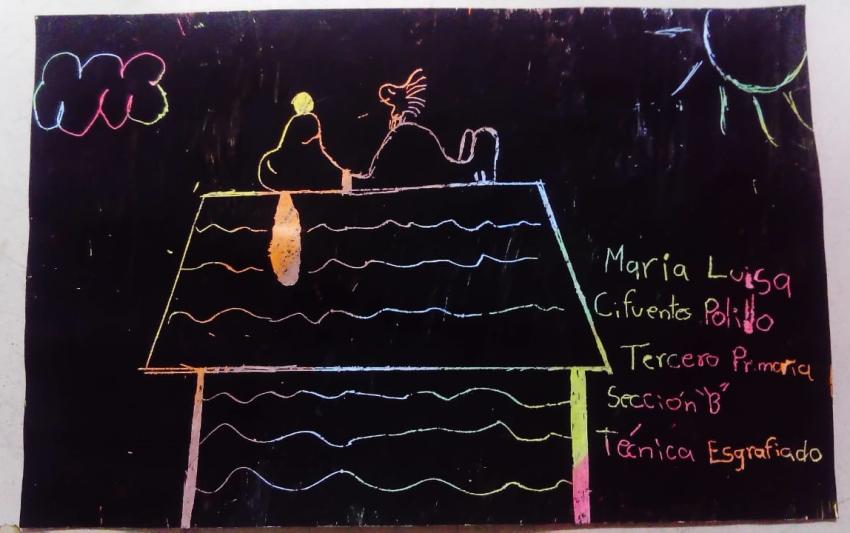 Maria Luisa
Cifuentes Polillo
Tercero Primaria
Sección "B"
Técnica Esgrafiado